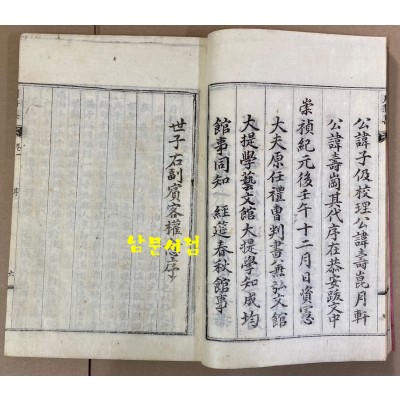 公諱子伋校理公諱壽崑月軒
公諱壽崗其代序在恭安跋文中
崇禎紀元後壬午十二月日資憲
大夫原任禮曹判書兼弘文館
大提學藝文館大提學知成均
館事同知 經筵春秋館事
世子右副賓客權愈序
남문서점